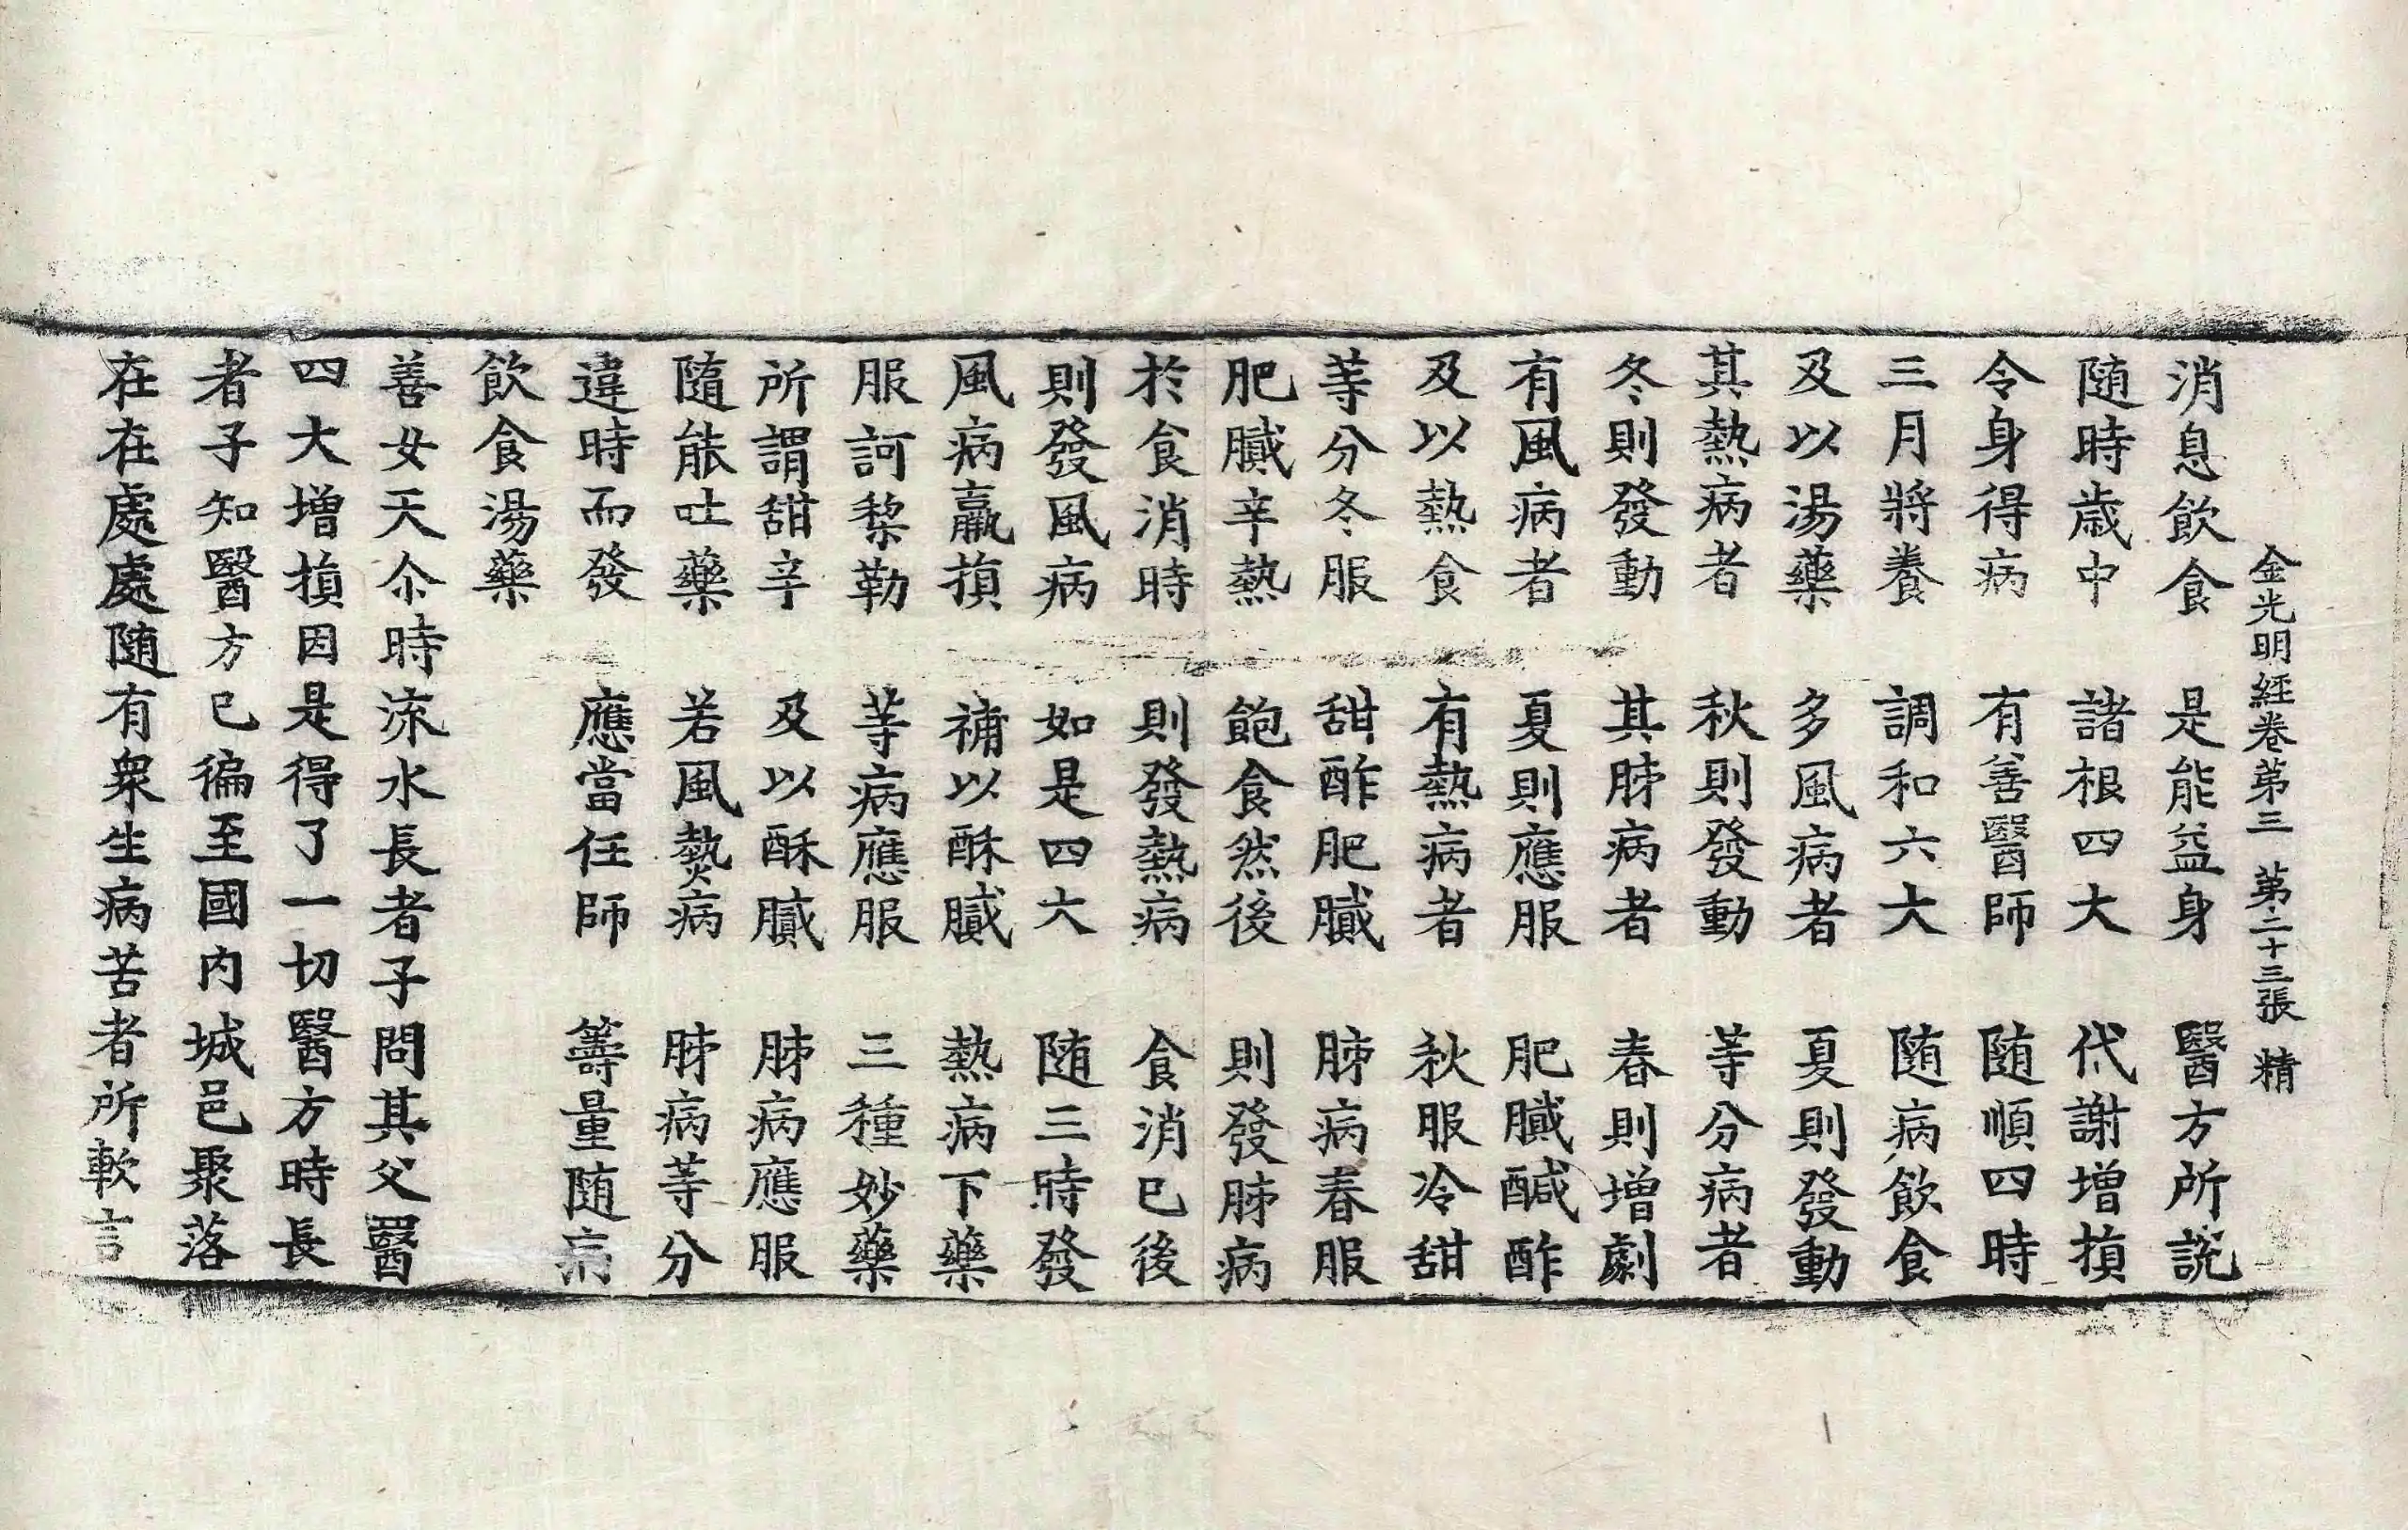 金光明經卷第三 第二十三張 精
消息飲食 是能益身 醫方所説
随時歳中 諸根四大 代謝增損
令身得病 有善醫師 随順四時
三月將養 調和六大 随病飲食
及以湯藥 多風病者 夏則發動
其熱病者 秋則發動 等分病者
冬則發動 其肺病者 春則增劇
有風病者 夏則應服 肥膩醎酢
及以熱食 有熱病者 秋服冷甜
等分冬服 甜酢肥膩 肺病春服
肥膩辛熱 飽食然後 則發肺病
於食消時 則發熱病 食消已後
則發風病 如是四大 随三時發
風病羸損 補以酥膩 熱病下藥
服訶梨勒 等病應服 三種妙藥
所謂甜辛 及以酥膩 肺病應服
隨能吐藥 若風熱病 肺病等分
違時而發 應當任師 籌量随病
飲食湯藥
善女天尒時流水長者子問其父醫
四大增損因是得了一切醫方時長
者子知醫方已徧至國內城邑聚落
在在處處随有衆生病苦者所軟言